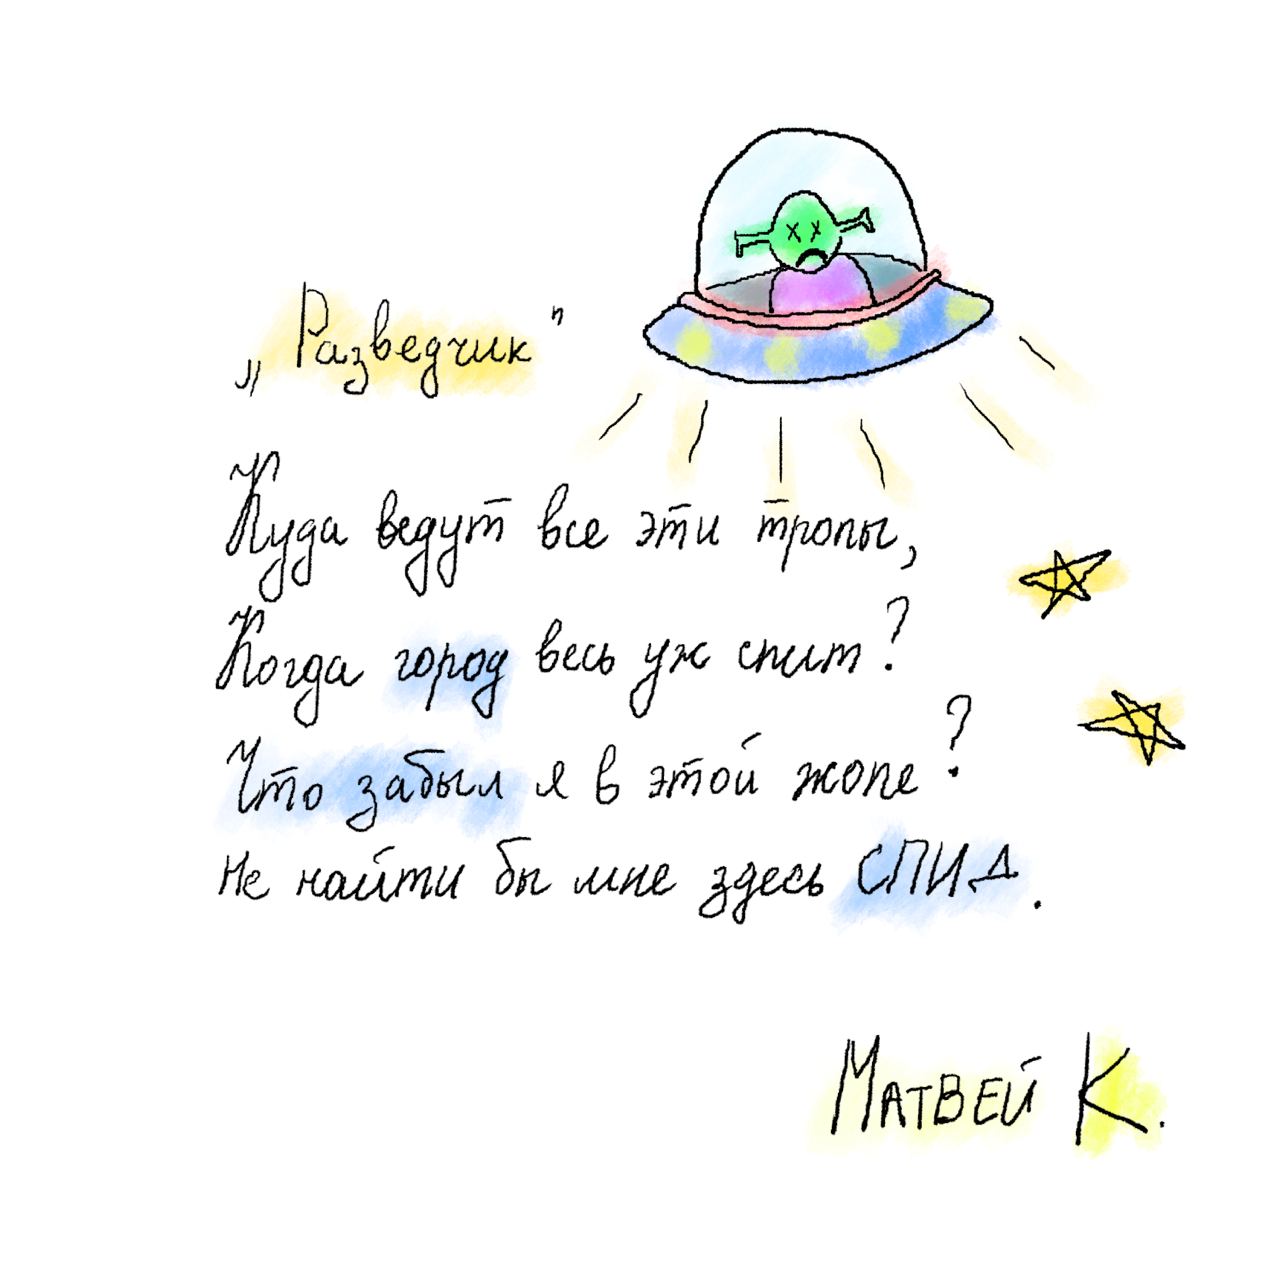 „Разведчик"
Куда ведут все эти тропы,
Когда город весь уж спит?
Что забыл я в этой жопе?
Не найти бы мне здесь СПИД.
Матвей К.